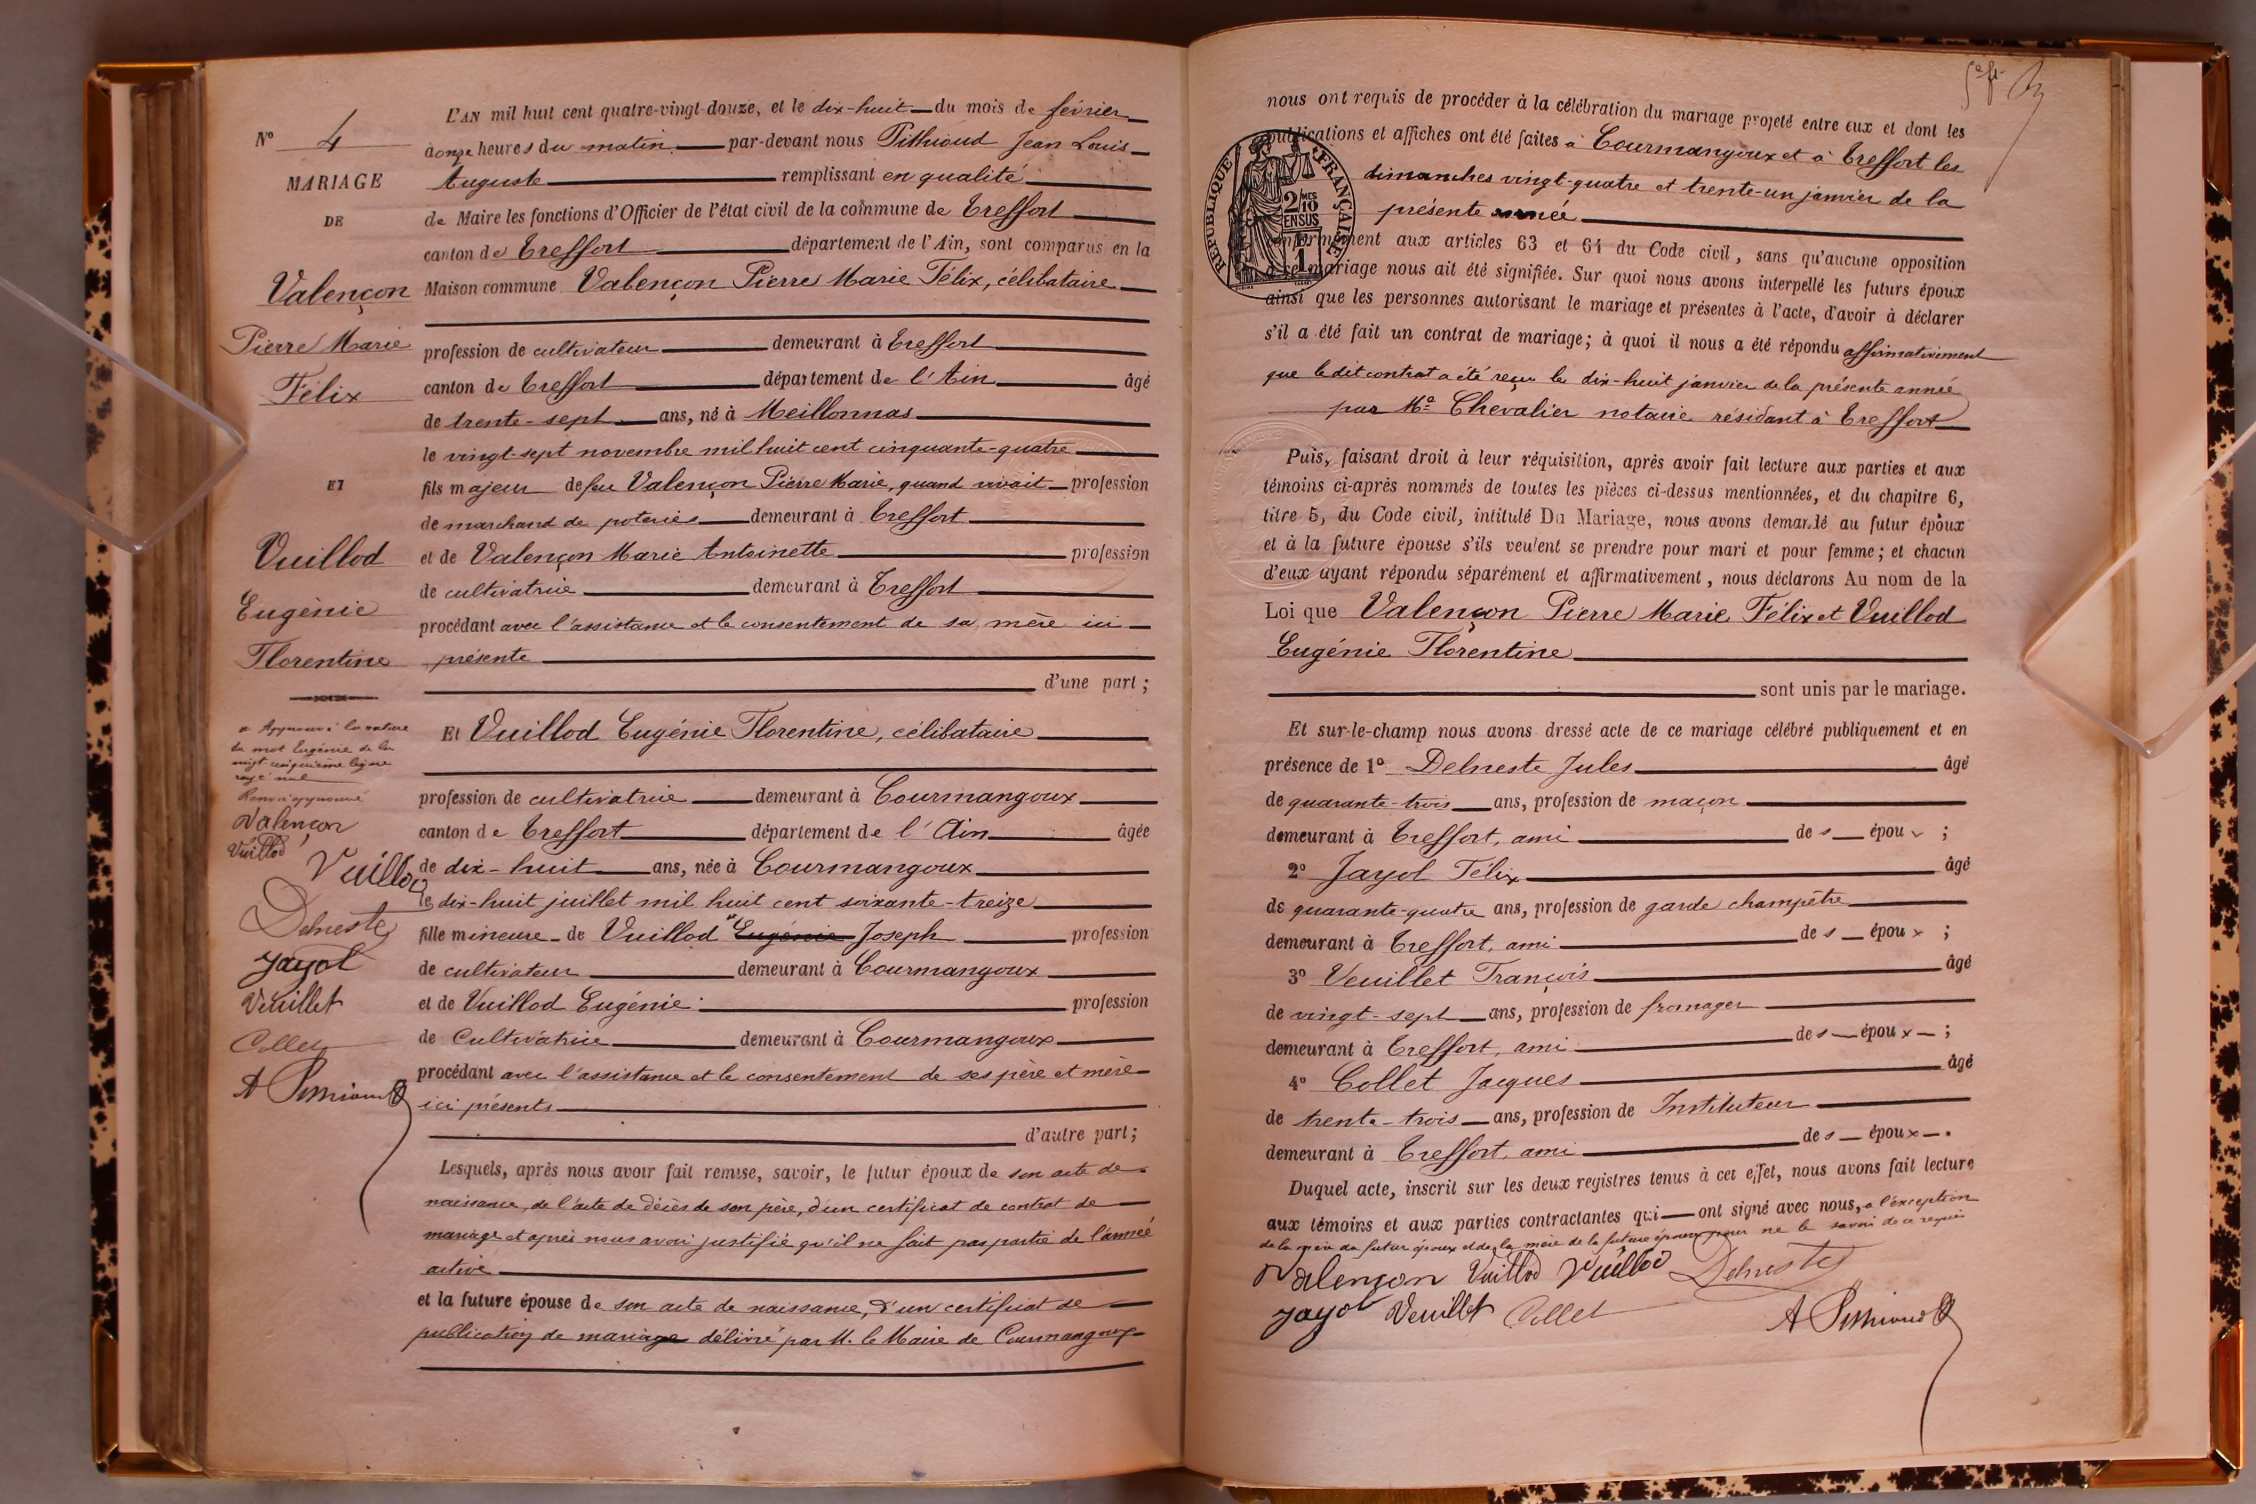 N° 4
MARIAGE
DE
Valençon
Pierre Marie
Félix
ET
Vuillod
Eugénie
Florentine
Approuvé la rature
du mot Eugénie de la
vingt-cinquième ligne
rayé nul
Renvoi approuvé
Valençon
Vuillod
Vuillod
Delneste
Jayol
Veuillet
Collet
L'AN mil huit cent quatre-vingt-douze, et le dix-huit du mois de février
à onze heures du matin par-devant nous Pithioud Jean Louis
Auguste remplissant en qualité
de Maire les fonctions d'Officier de l'état civil de la commune de Treffort
canton de Treffort département de l'Ain, sont comparus en la
Maison commune Valençon Pierre Marie Félix, célibataire
profession de cultivateur demeurant à Treffort
canton de Treffort département de l'Ain âgé
de trente-sept ans, né à Meillonnas
le vingt-sept novembre mil huit cent cinquante-quatre
fils majeur de feu Valençon Pierre Marie, quand vivait profession
de marchand de poteries demeurant à Treffort
et de Valençon Marie Antoinette profession
de cultivatrice demeurant à Treffort
procédant avec l'assistance et le consentement de sa mère ici
présente
d'une part ;
Et Vuillod Eugénie Florentine, célibataire
profession de cultivatrice demeurant à Courmangoux
canton de Treffort département de l'Ain âgée
de dix-huit ans, née à Courmangoux
le dix-huit juillet mil huit cent soixante-treize
fille mineure de Vuillod Eugénie Joseph profession
de cultivateur demeurant à Courmangoux
et de Vuillod Eugénie profession
de Cultivatrice demeurant à Courmangoux
procédant avec l'assistance et le consentement de ses père et mère
ici présents
d'autre part ;
Lesquels, après nous avoir fait remise, savoir, le futur époux de son acte de
naissance, de l'acte de décès de son père, d'un certificat de contrat de
mariage et après nous avoir justifié qu'il ne fait pas partie de l'armée
active
et la future épouse de son acte de naissance, d'un certificat de
publication de mariage délivré par M. le Maire de Courmangoux
nous ont requis de procéder à la célébration du mariage projeté entre eux et dont les
publications et affiches ont été faites à Courmangoux et à Treffort les
dimanches vingt-quatre et trente-un janvier de la
présente année
RÉPUBLIQUE FRANÇAISE
2 MES
10
EN SUS
1
conformément aux articles 63 et 64 du Code civil, sans qu'aucune opposition
à ce mariage nous ait été signifiée. Sur quoi nous avons interpellé les futurs époux
ainsi que les personnes autorisant le mariage et présentes à l'acte, d'avoir à déclarer
s'il a été fait un contrat de mariage; à quoi il nous a été répondu affirmativement
que le dit contrat a été reçu le dix-huit janvier de la présente année
par Me Chevalier notaire résidant à Treffort
Puis, faisant droit à leur réquisition, après avoir fait lecture aux parties et aux
témoins ci-après nommés de toutes les pièces ci-dessus mentionnées, et du chapitre 6,
titre 5, du Code civil, intitulé Du Mariage, nous avons demandé au futur époux
et à la future épouse s'ils veulent se prendre pour mari et pour femme ; et chacun
d'eux ayant répondu séparément et affirmativement, nous déclarons Au nom de la
Loi que Valençon Pierre Marie Félix et Vuillod
Eugénie Florentine
sont unis par le mariage.
Et sur-le-champ nous avons dressé acte de ce mariage célébré publiquement et en
présence de 1° Delneste Jules âgé
de quarante-trois ans, profession de maçon
demeurant à Treffort, ami de s épou x ;
2° Jayol Félix âgé
de quarante-quatre ans, profession de garde champêtre
demeurant à Treffort, ami de s épou x ;
3° Veuillet François âgé
de vingt-sept ans, profession de fromager
demeurant à Treffort, ami de s épou x ;
4° Collet Jacques âgé
de trente-trois ans, profession de Instituteur
demeurant à Treffort, ami de s épou x .
Duquel acte, inscrit sur les deux registres tenus à cet effet, nous avons fait lecture
aux témoins et aux parties contractantes qui ont signé avec nous, à l'exception
de la mère du futur époux et de la mère de la future épouse pour ne le savoir de ce requis
Valençon Vuillod Vuillod Delneste
Jayol Veuillet Collet